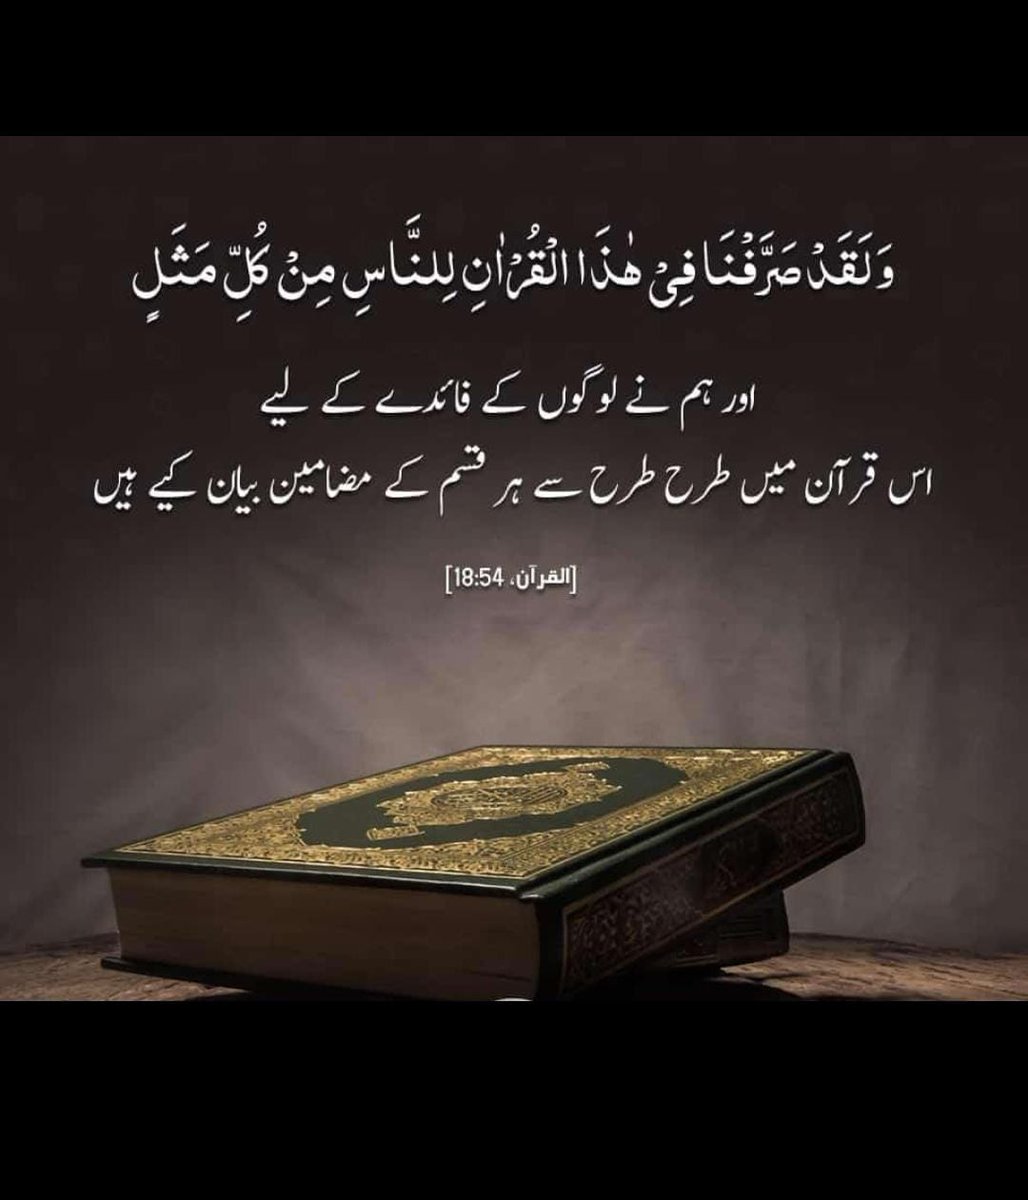 وَلَقَدۡ صَرَّفۡنَا فِیۡ هٰذَا الۡقُرۡاٰنِ لِلنَّاسِ مِنۡ كُلِّ مَثَلٍ
اور ہم نے لوگوں کے فائدے کے لیے
اس قرآن میں طرح طرح سے ہر قسم کے مضامین بیان کیے ہیں
[القرآن، 18:54]